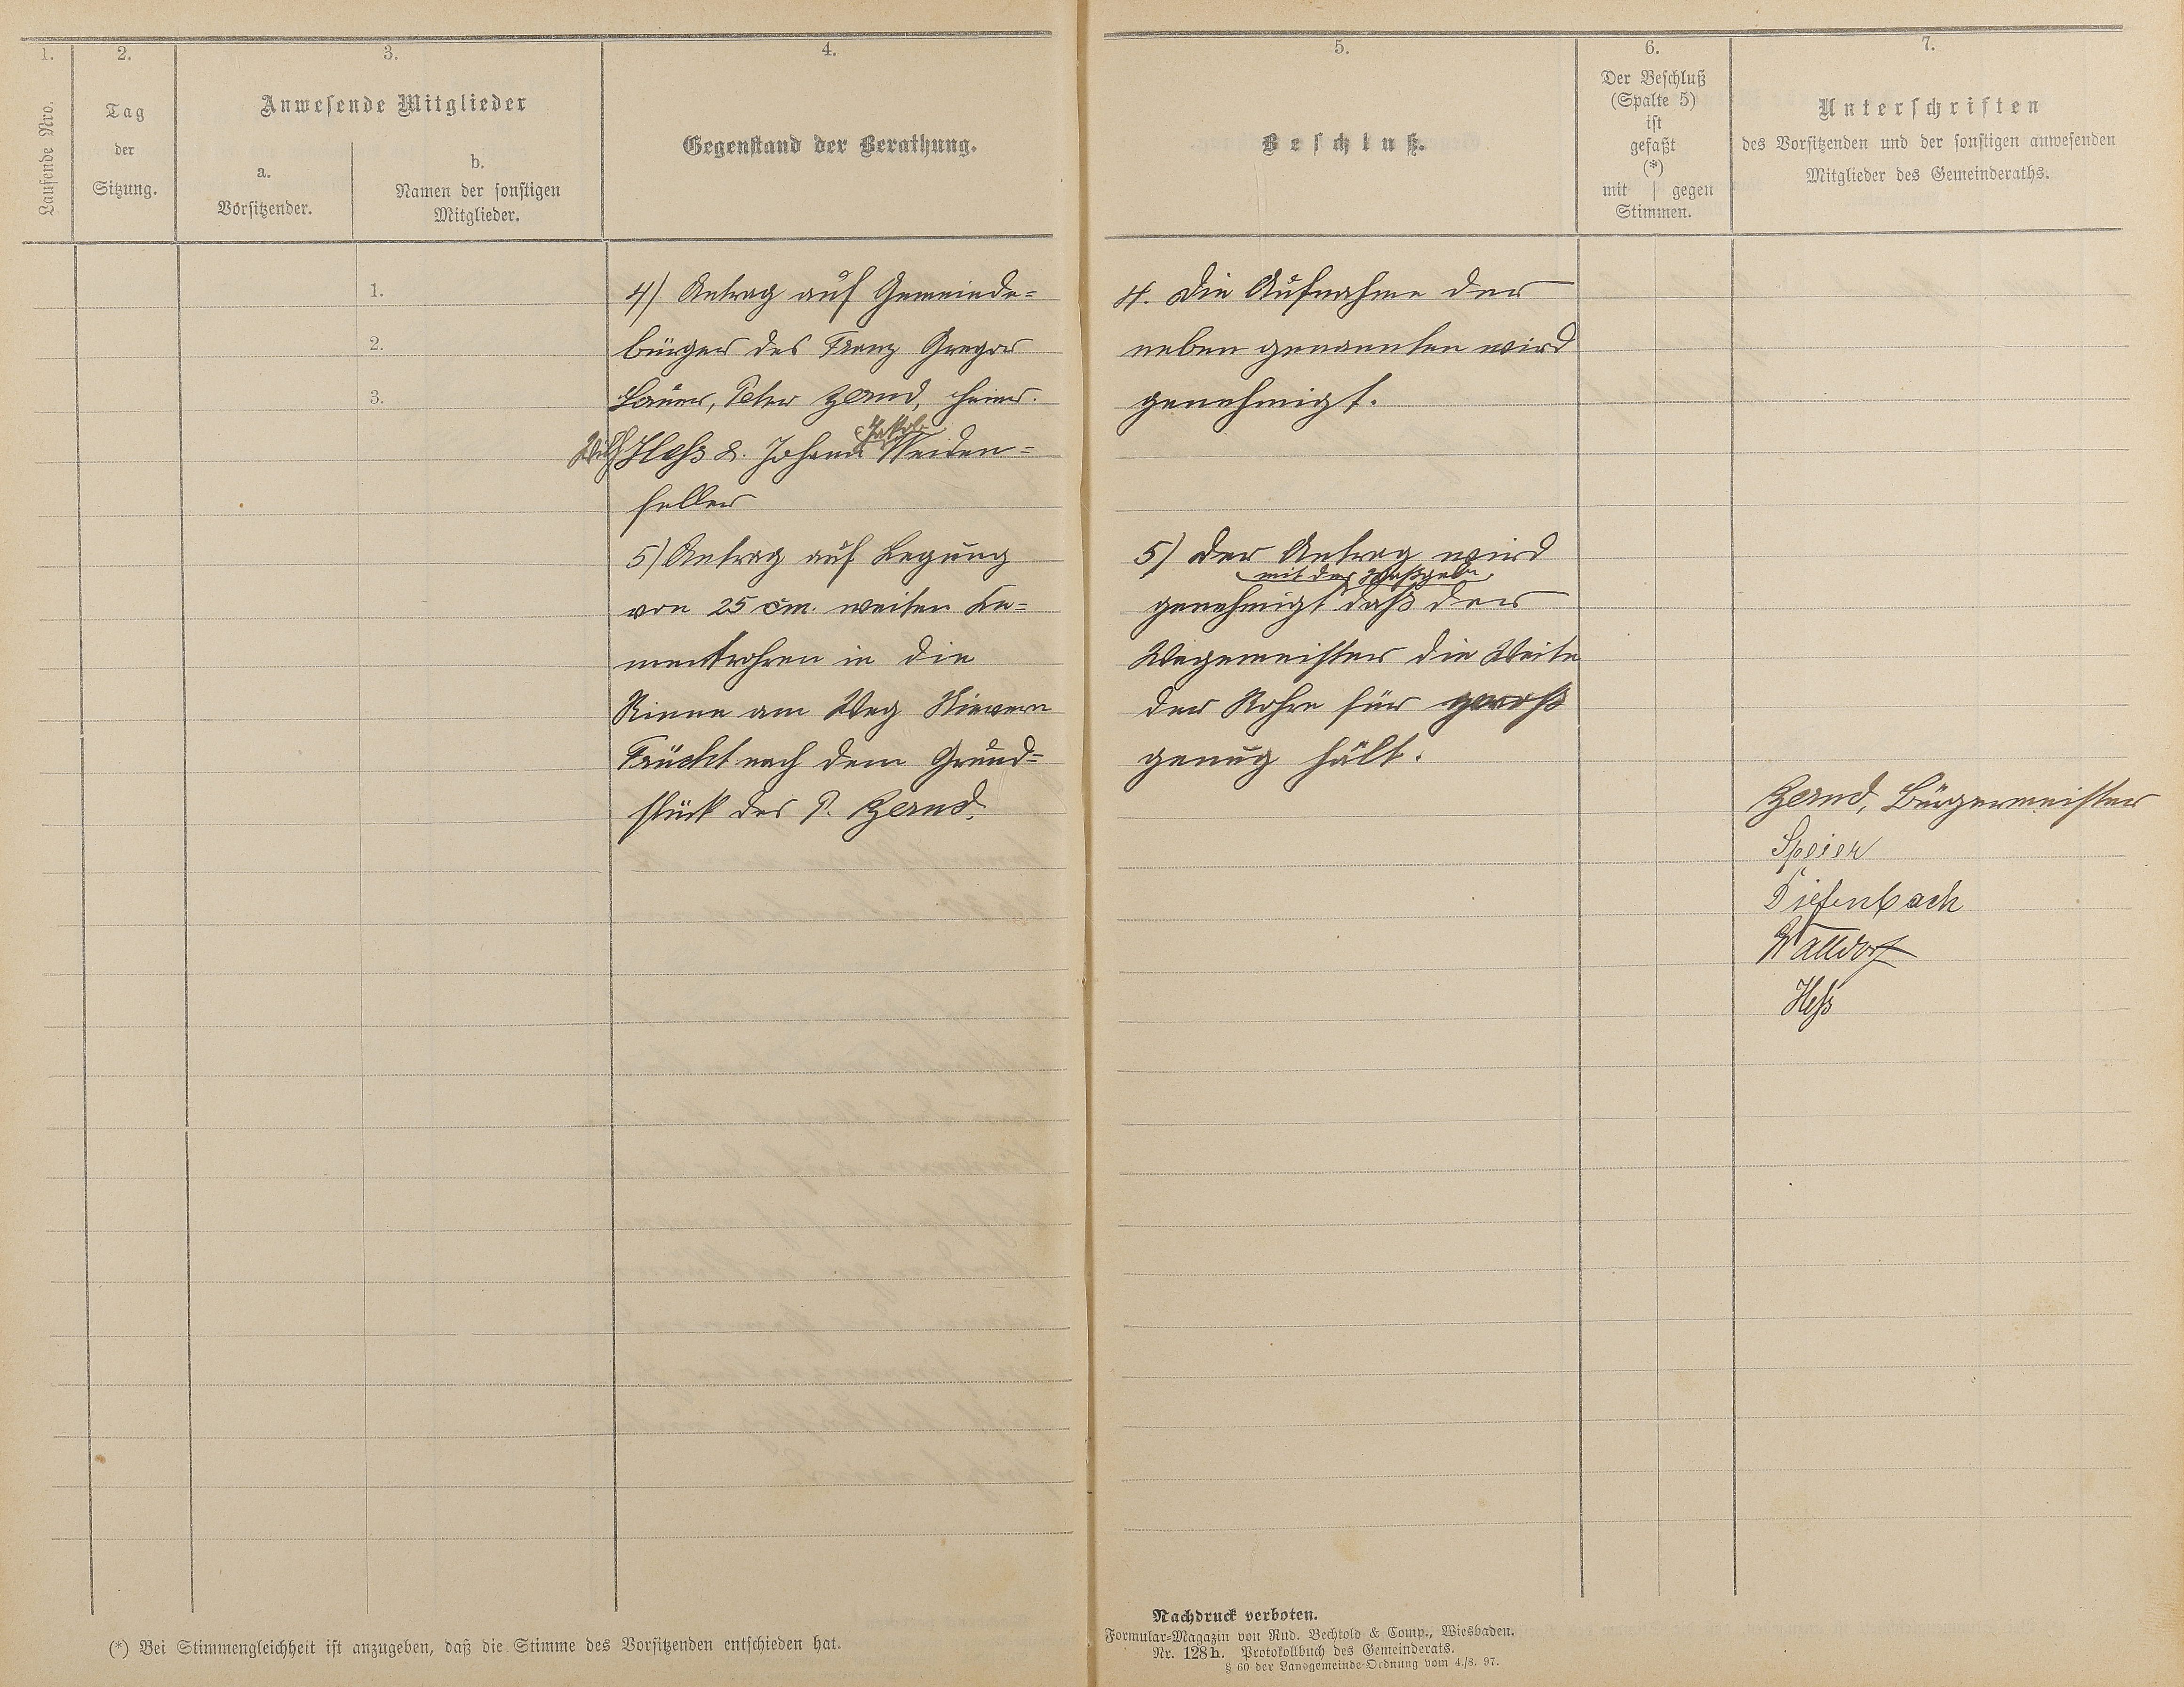 1.
2.
3.
4.
Laufende Nro.
Tag
der
Sitzung.
Anwesende Mitglieder
a.
Vorsitzender.
b.
Namen der sonstigen
Mitglieder.
Gegenstand der Berathung.
1.
2.
3.
4) Antrag auf Gemeinde=
bürger des Franz Gregor
Lauer, Peter Zernd, Heinr.
Wilh Heß & Johann Jakob Weiden=
feller
5) Antrag auf Legung
von 25 cm. weiten Ze=
mentrohren in die
Rinne am Weg Nievern
Frücht nach dem Grund=
stück des P. Zernd.
(*) Bei Stimmengleichheit ist anzugeben, daß die Stimme des Vorsitzenden entschieden hat.
5.
6.
7.
Beschluß.
Der Beschluß
(Spalte 5)
ist
gefaßt
(*)
mit | gegen
Stimmen.
Unterschriften
des Vorsitzenden und der sonstigen anwesenden
Mitglieder des Gemeinderaths.
4. Die Aufnahme der
neben genannten wird
genehmigt.
5) Der Antrag wird
mit der Maßgabe
genehmigt daß der
Wegemeister die Weite
der Rohre für groß
genug hält.
Zernd, Bürgermeister
Speier
Diefenbach
Walldorf
Heß
Nachdruck verboten.
Formular=Magazin von Rud. Bechtold & Comp., Wiesbaden.
Nr. 128 h. Protokollbuch des Gemeinderats.
§ 60 der Landgemeinde=Ordnung vom 4./8. 97.